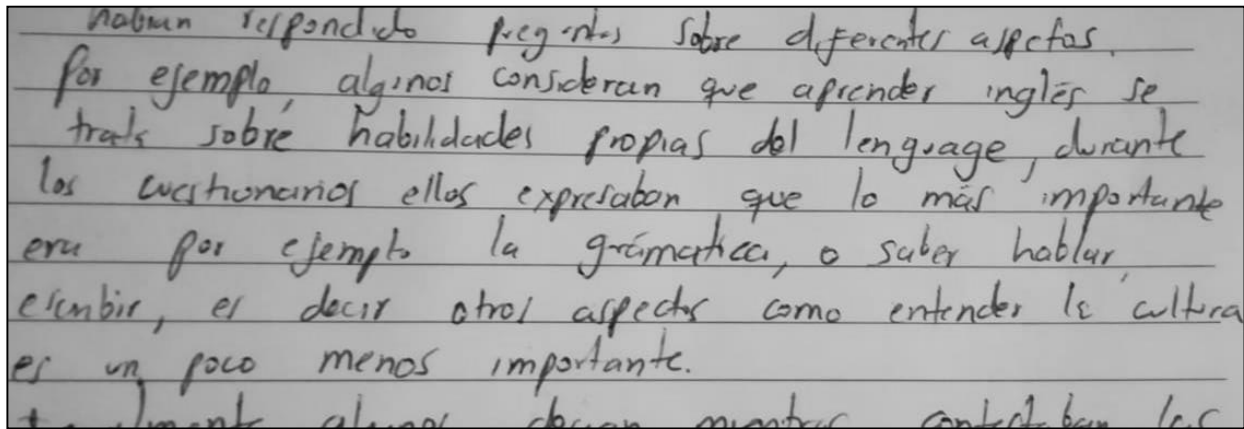 habian respondido preguntas sobre diferentes aspectos.
Por ejemplo, algunos consideran que aprender inglés se
trata sobre habilidades propias del lenguage, durante
los cuestionarios ellos expresaban que lo más importante
era por ejemplo la grámatica, o saber hablar,
escribir, es decir otros aspectos como entender la cultura
es un poco menos importante.
algunos decian mientras contestaban las